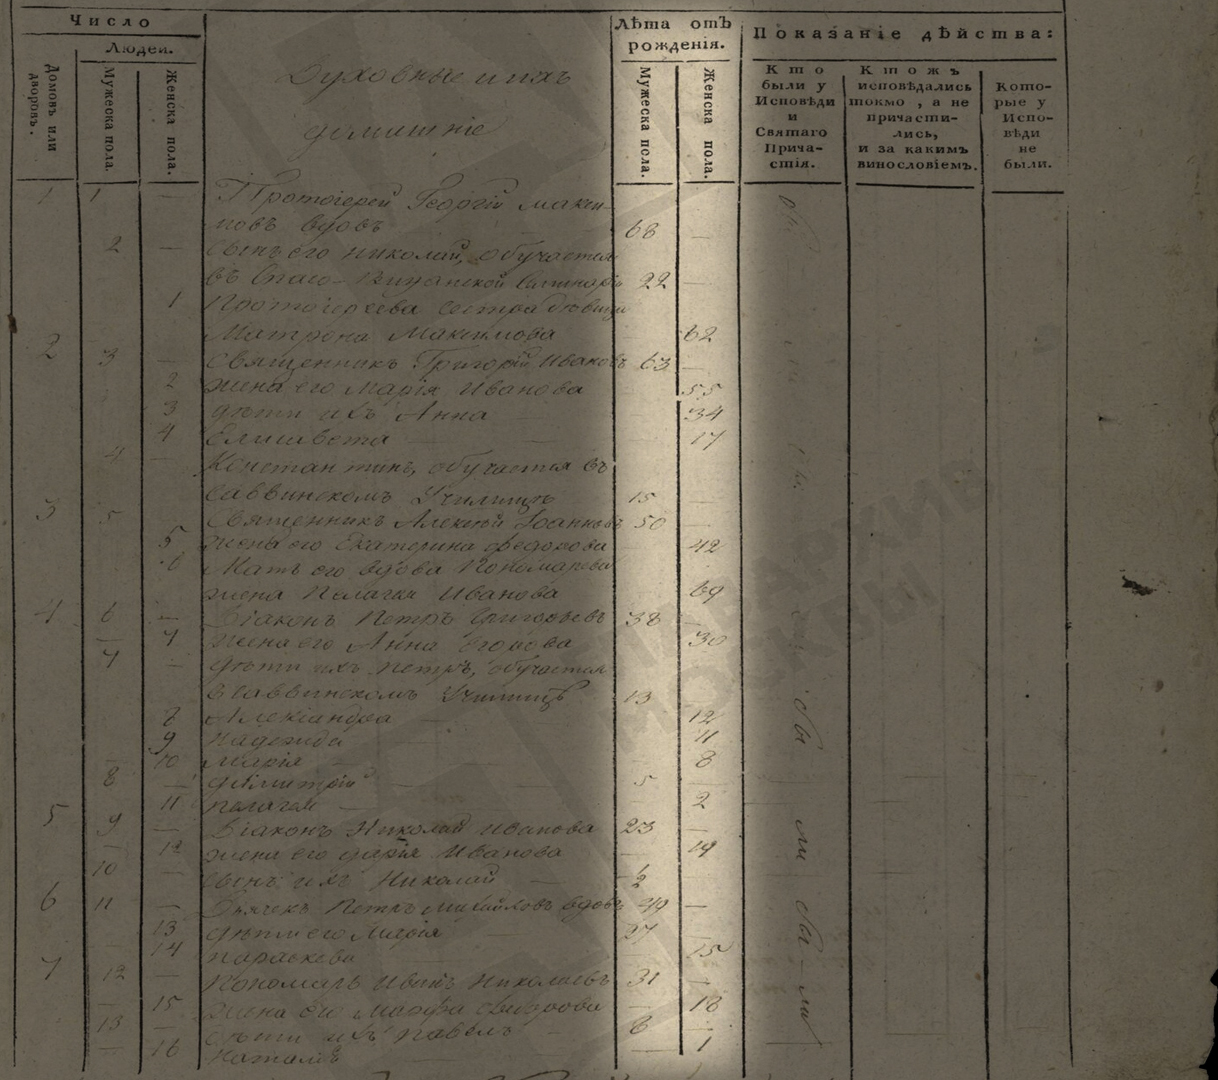 Число
Людей.
Домовъ или дворовъ.
Мужеска пола.
Женска пола.
Духовные и ихъ
домашніе
Лѣта отъ
рожденія.
Мужеска пола.
Женска пола.
Показаніе дѣйства:
Кто
были у
Исповѣди
и
Святаго
Прича-
стія.
Ктожъ
исповѣдались
токмо, а не
причасти-
лись,
и за какимъ
винословіемъ.
Кото-
рые у
Испо-
вѣди
не
были.
1 1 — Протоіерей Георгій Макси-
мовъ вдовъ 68 —
2 — Сынъ его Николай, обучается
въ Спасо-Виѳанской Семинаріи 22 —
1 Протоіереева сестра девица
Матрона Максимова 62
2 3 — Священникъ Григорій Ивановъ 63 —
2 жена его Марія Иванова 55
3 дѣти ихъ Анна — 34
4 Елисавета — 17
4 — Константинъ, обучается въ
Саввинскомъ Училищѣ 15 —
3 5 Священникъ Алексѣй Іоанновъ 50 —
5 жена его Екатерина Федорова 42
6 Мать его вдова Пономарева
жена Пелагея Иванова 69
4 6 — Діаконъ Петръ Григорьевъ 38 —
7 жена его Анна Егорова 30
7 — дѣти ихъ Петръ, обучается
въ Саввинскомъ Училищѣ 13
8 Александра — 12
9 Надежда 11
10 Марія — 8
8 — Димитрій 5
11 Пелагея — 2
5 9 — Діаконъ Николай Иванова 23 —
12 жена его Марія Иванова 19
10 — сынъ ихъ Николай — 2
6 11 — Дьячекъ Петръ Михайловъ вдовъ 49 —
13 дѣти его Марія 27
14 Параскева 15
7 12 — Пономарь Иванъ Николаевъ 31 —
15 жена его Марфа Федорова 18
13 — дѣти ихъ Павелъ — 8
16 Наталья — 1